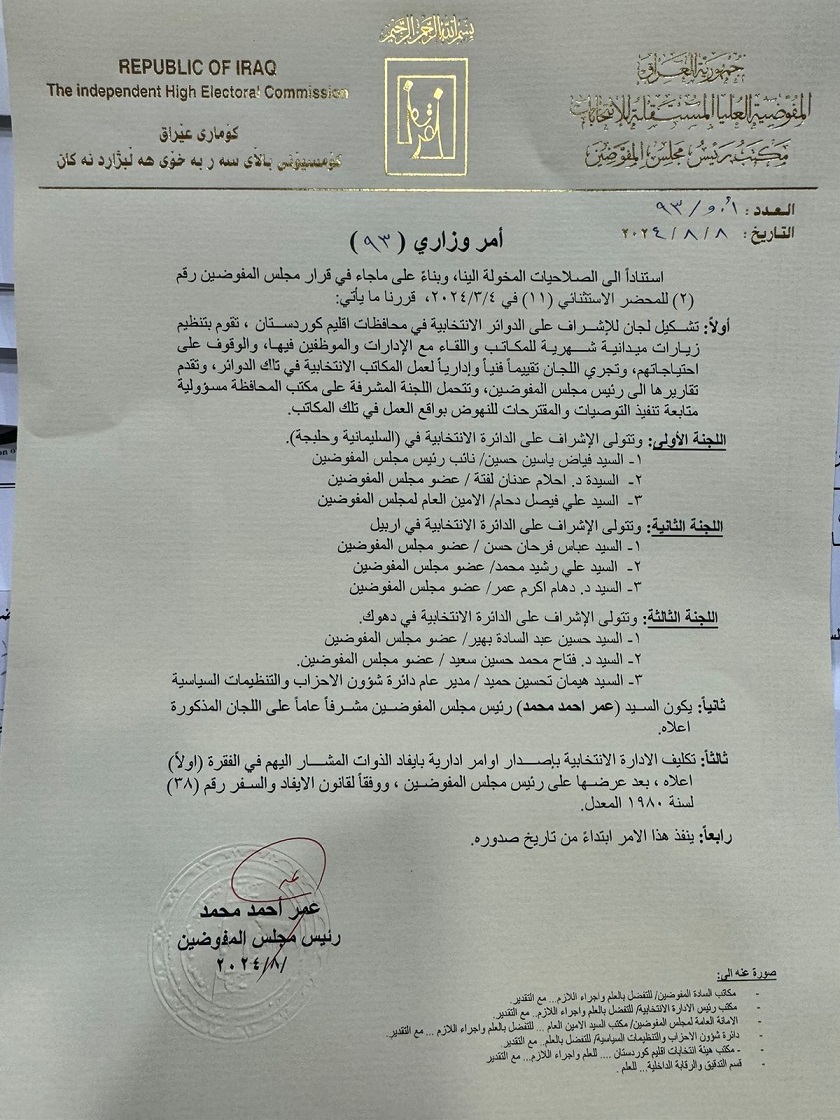 بسم الله الرحمن الرحيم
REPUBLIC OF IRAQ
The independent High Electoral Commission
كۆماری عێراق
كۆمسيۆنی بالآی سه ر به خۆی هه لبژارد نه كان
جمهورية العراق
المفوضية العليا المستقلة للانتخابات
مكتب رئيس مجلس المفوضين
العدد: أ.و/ ٩٣
التاريخ: ٨ / ٨ / ٢٠٢٤
أمر وزاري ( ٩٣ )
استناداً الى الصلاحيات المخولة الينا، وبناءً على ماجاء في قرار مجلس المفوضين رقم
(٢) للمحضر الاستثنائي (١١) في ٢٠٢٤/٣/٤، قررنا ما يأتي:
أولاً: تشكيل لجان للإشراف على الدوائر الانتخابية في محافظات اقليم كوردستان ، تقوم بتنظيم
زيارات ميدانية شهرية للمكاتب واللقاء مع الإدارات والموظفين فيها، والوقوف على
احتياجاتهم، وتجري اللجان تقييماً فنياً وإدارياً لعمل المكاتب الانتخابية في تلك الدوائر، وتقدم
تقاريرها الى رئيس مجلس المفوضين، وتتحمل اللجنة المشرفة على مكتب المحافظة مسؤولية
متابعة تنفيذ التوصيات والمقترحات للنهوض بواقع العمل في تلك المكاتب.
اللجنة الأولى: وتتولى الإشراف على الدائرة الانتخابية في (السليمانية وحلبجة).
١- السيد فياض ياسين حسين/ نائب رئيس مجلس المفوضين
٢- السيدة د. احلام عدنان لفتة / عضو مجلس المفوضين
٣- السيد علي فيصل دحام/ الامين العام لمجلس المفوضين
اللجنة الثانية: وتتولى الإشراف على الدائرة الانتخابية في اربيل
١- السيد عباس فرحان حسن / عضو مجلس المفوضين
٢- السيد علي رشيد محمد/ عضو مجلس المفوضين
٣- السيد د. دهام اكرم عمر/ عضو مجلس المفوضين
اللجنة الثالثة: وتتولى الإشراف على الدائرة الانتخابية في دهوك.
١- السيد حسين عبد السادة بهير/ عضو مجلس المفوضين
٢- السيد د. فتاح محمد حسين سعيد / عضو مجلس المفوضين.
٣- السيد هيمان تحسين حميد / مدير عام دائرة شؤون الاحزاب والتنظيمات السياسية
ثانياً: يكون السيد (عمر احمد محمد) رئيس مجلس المفوضين مشرفاً عاماً على اللجان المذكورة
اعلاه.
ثالثاً: تكليف الادارة الانتخابية بإصدار اوامر ادارية بايفاد الذوات المشار اليهم في الفقرة (اولاً)
اعلاه ، بعد عرضها على رئيس مجلس المفوضين ، ووفقاً لقانون الايفاد والسفر رقم (٣٨)
لسنة ١٩٨٠ المعدل.
رابعاً: ينفذ هذا الامر ابتداءً من تاريخ صدوره.
عمر أحمد محمد
رئيس مجلس المفوضين
/٨/ ٢٠٢٤
صورة عنه الى:
- مكاتب السادة المفوضين/ للتفضل بالعلم واجراء اللازم... مع التقدير.
- مكتب رئيس الادارة الانتخابية/ للتفضل بالعلم واجراء اللازم.. مع التقدير.
- الامانة العامة لمجلس المفوضين/ مكتب السيد الامين العام ... للتفضل بالعلم واجراء اللازم ... مع التقدير.
- دائرة شؤون الاحزاب والتنظيمات السياسية/ للتفضل بالعلم.. مع التقدير.
- - مكتب هيئة انتخابات اقليم كوردستان .... للعلم واجراء اللازم... مع التقدير
- قسم التدقيق والرقابة الداخلية... للعلم .